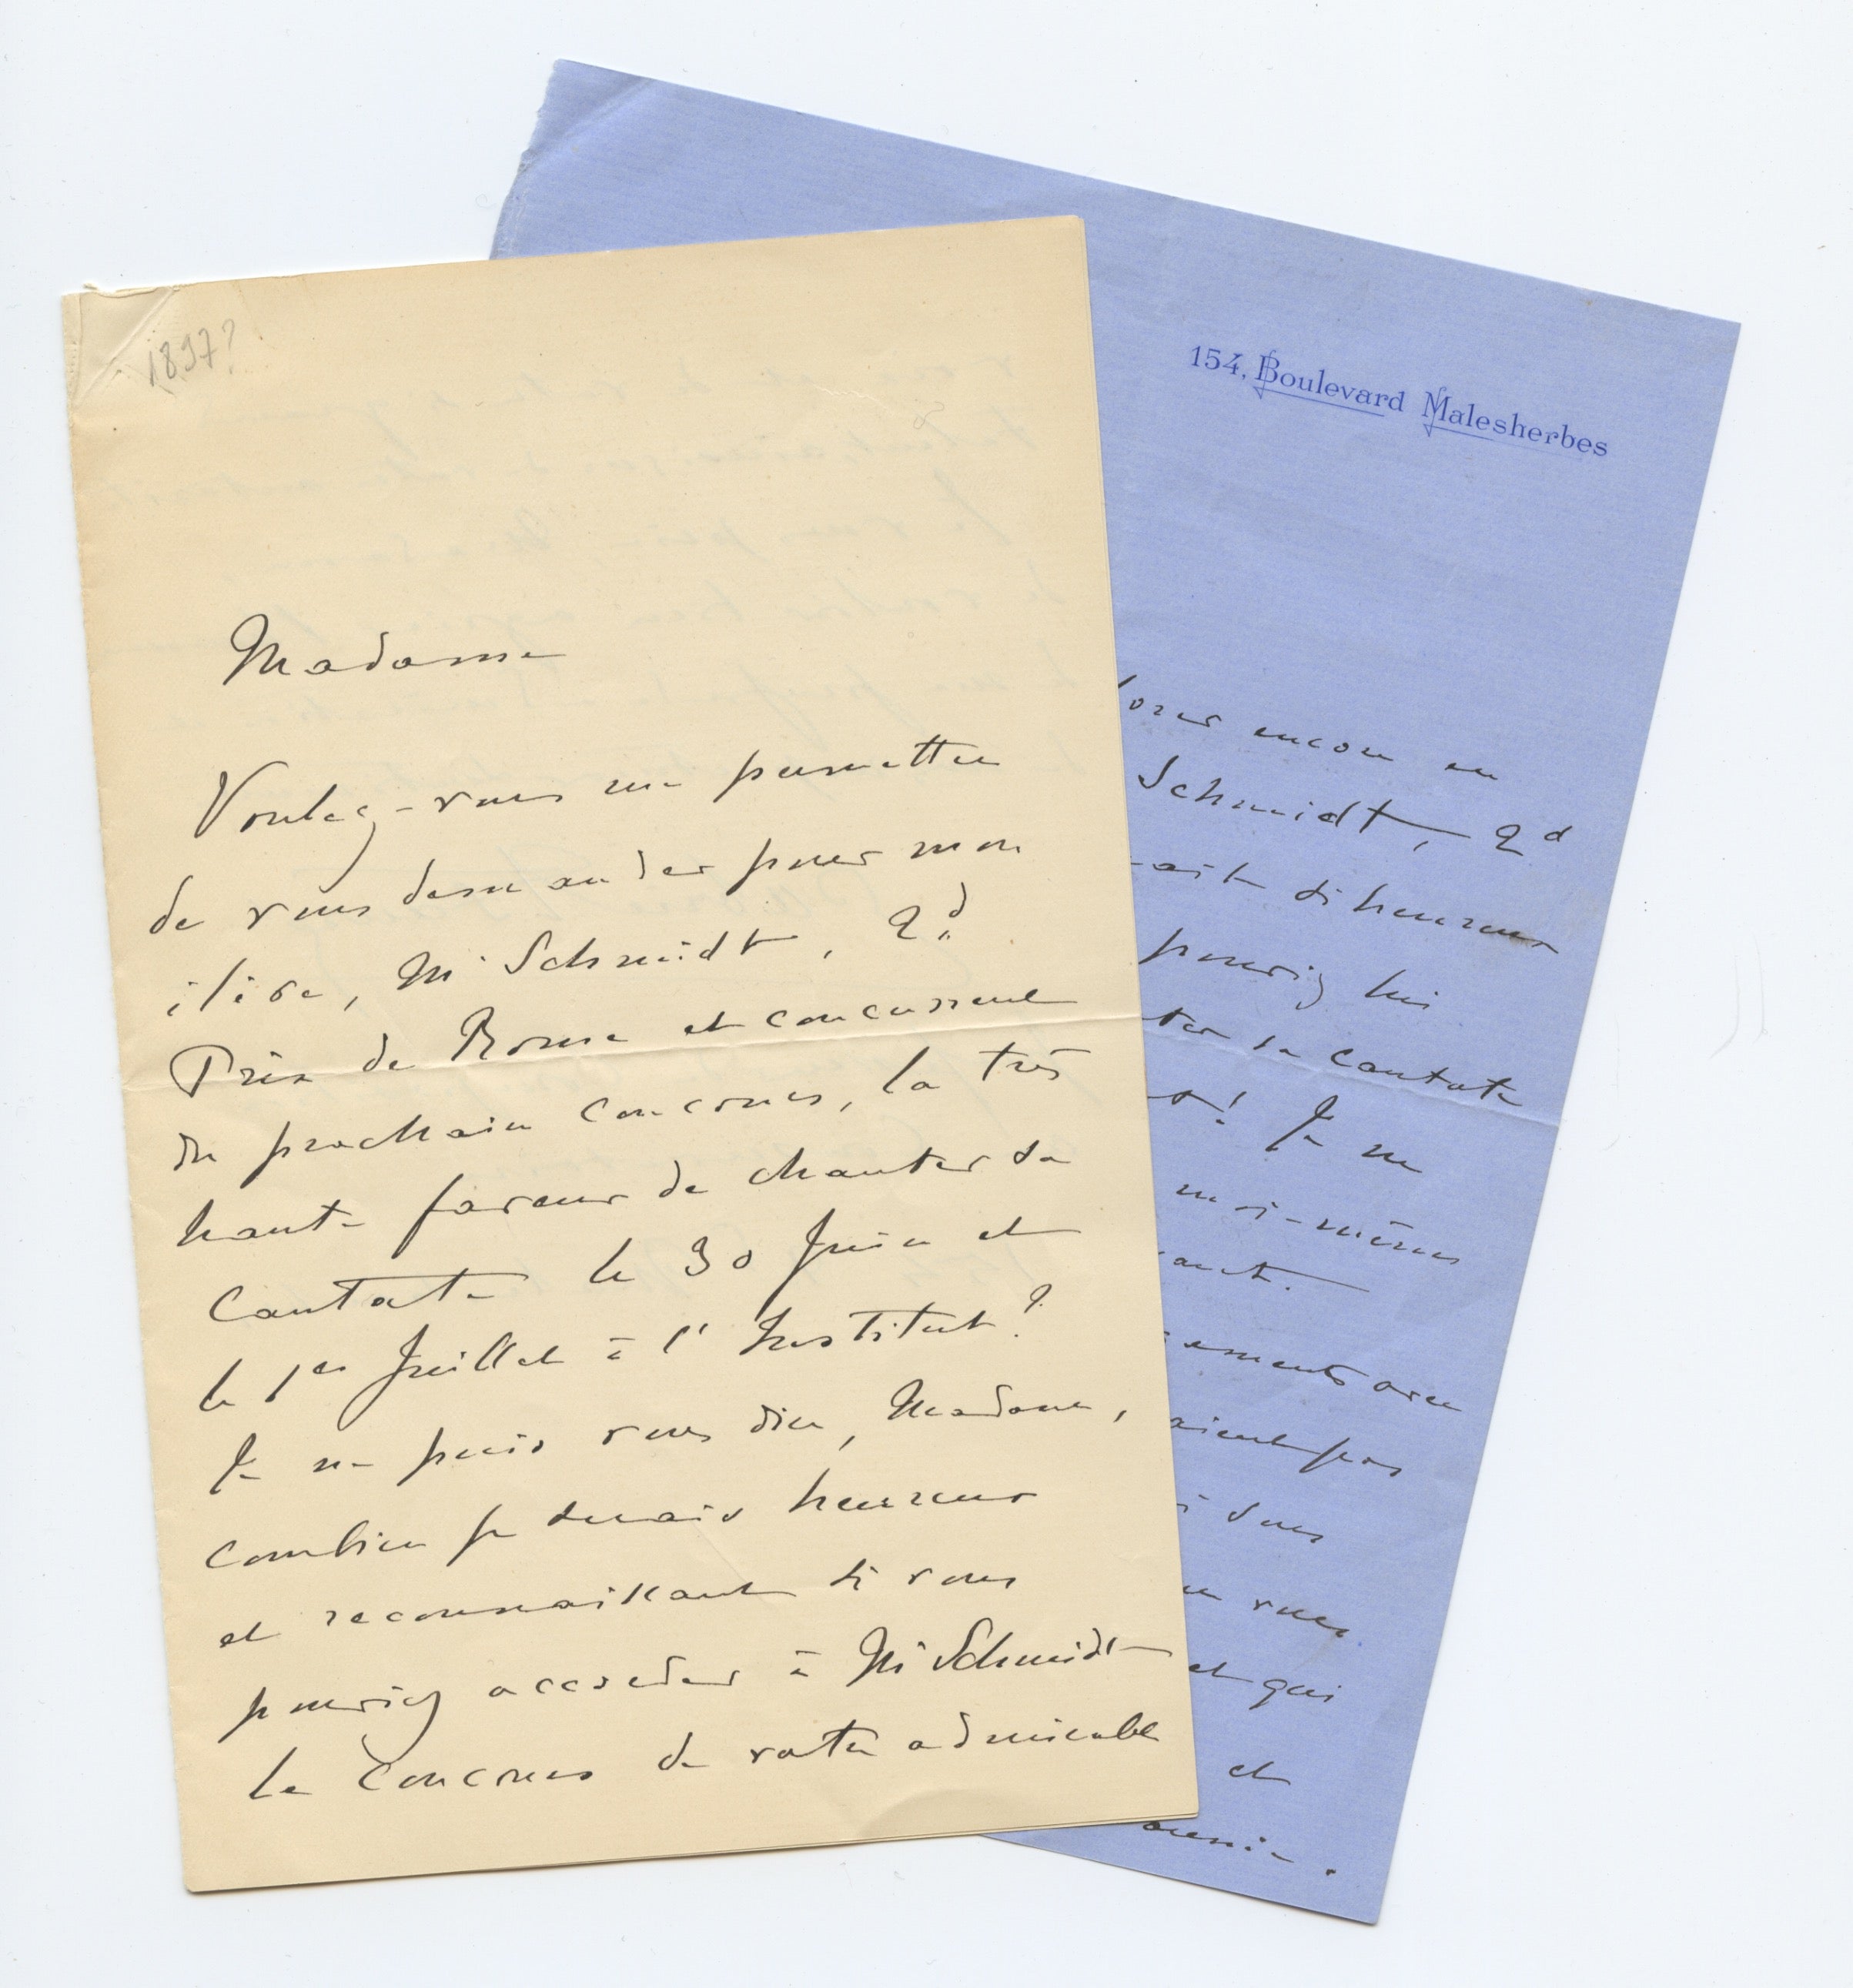 1897?
Madame
Voulez-vous me permettre
de vous demander pour mon
élève, Mr Schmidt, 2d
Prix de Rome et concurrent
du prochain concours, la très
haute faveur de chanter sa
Cantate le 30 Juin et
le 1er Juillet à l'Institut?
Je ne puis vous dire, Madame,
combien je serais heureux
et reconnaissant si vous
pouviez accorder à Mr Schmidt
le concours de votre admirable
154, Boulevard Malesherbes
encore en
Schmidt, 2d
si heureux
pouviez lui
sa cantate
! Je me
moi-même
avec
pas
vous
et qui
et